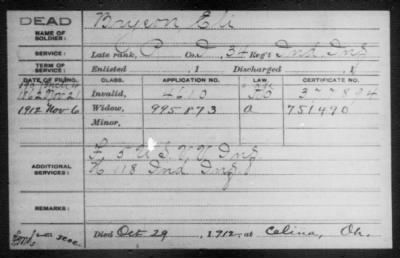 DEAD
NAME OF SOLDIER:
Bryson Eli
SERVICE:
Late rank, P Co. I, 34 Reg't Ind Inf
TERM OF SERVICE:
Enlisted , 1 Discharged , 1
DATE OF FILING. CLASS. APPLICATION NO. LAW. CERTIFICATE NO.
Invalid,
1912 Nov 6 Widow, 995873 a 751490
Minor,
ADDITIONAL SERVICES:
F 5 U.S.V.V. Inf
K 118 Ind Inf
REMARKS:
Died Oct 29, 1912, at Celina, Oh.